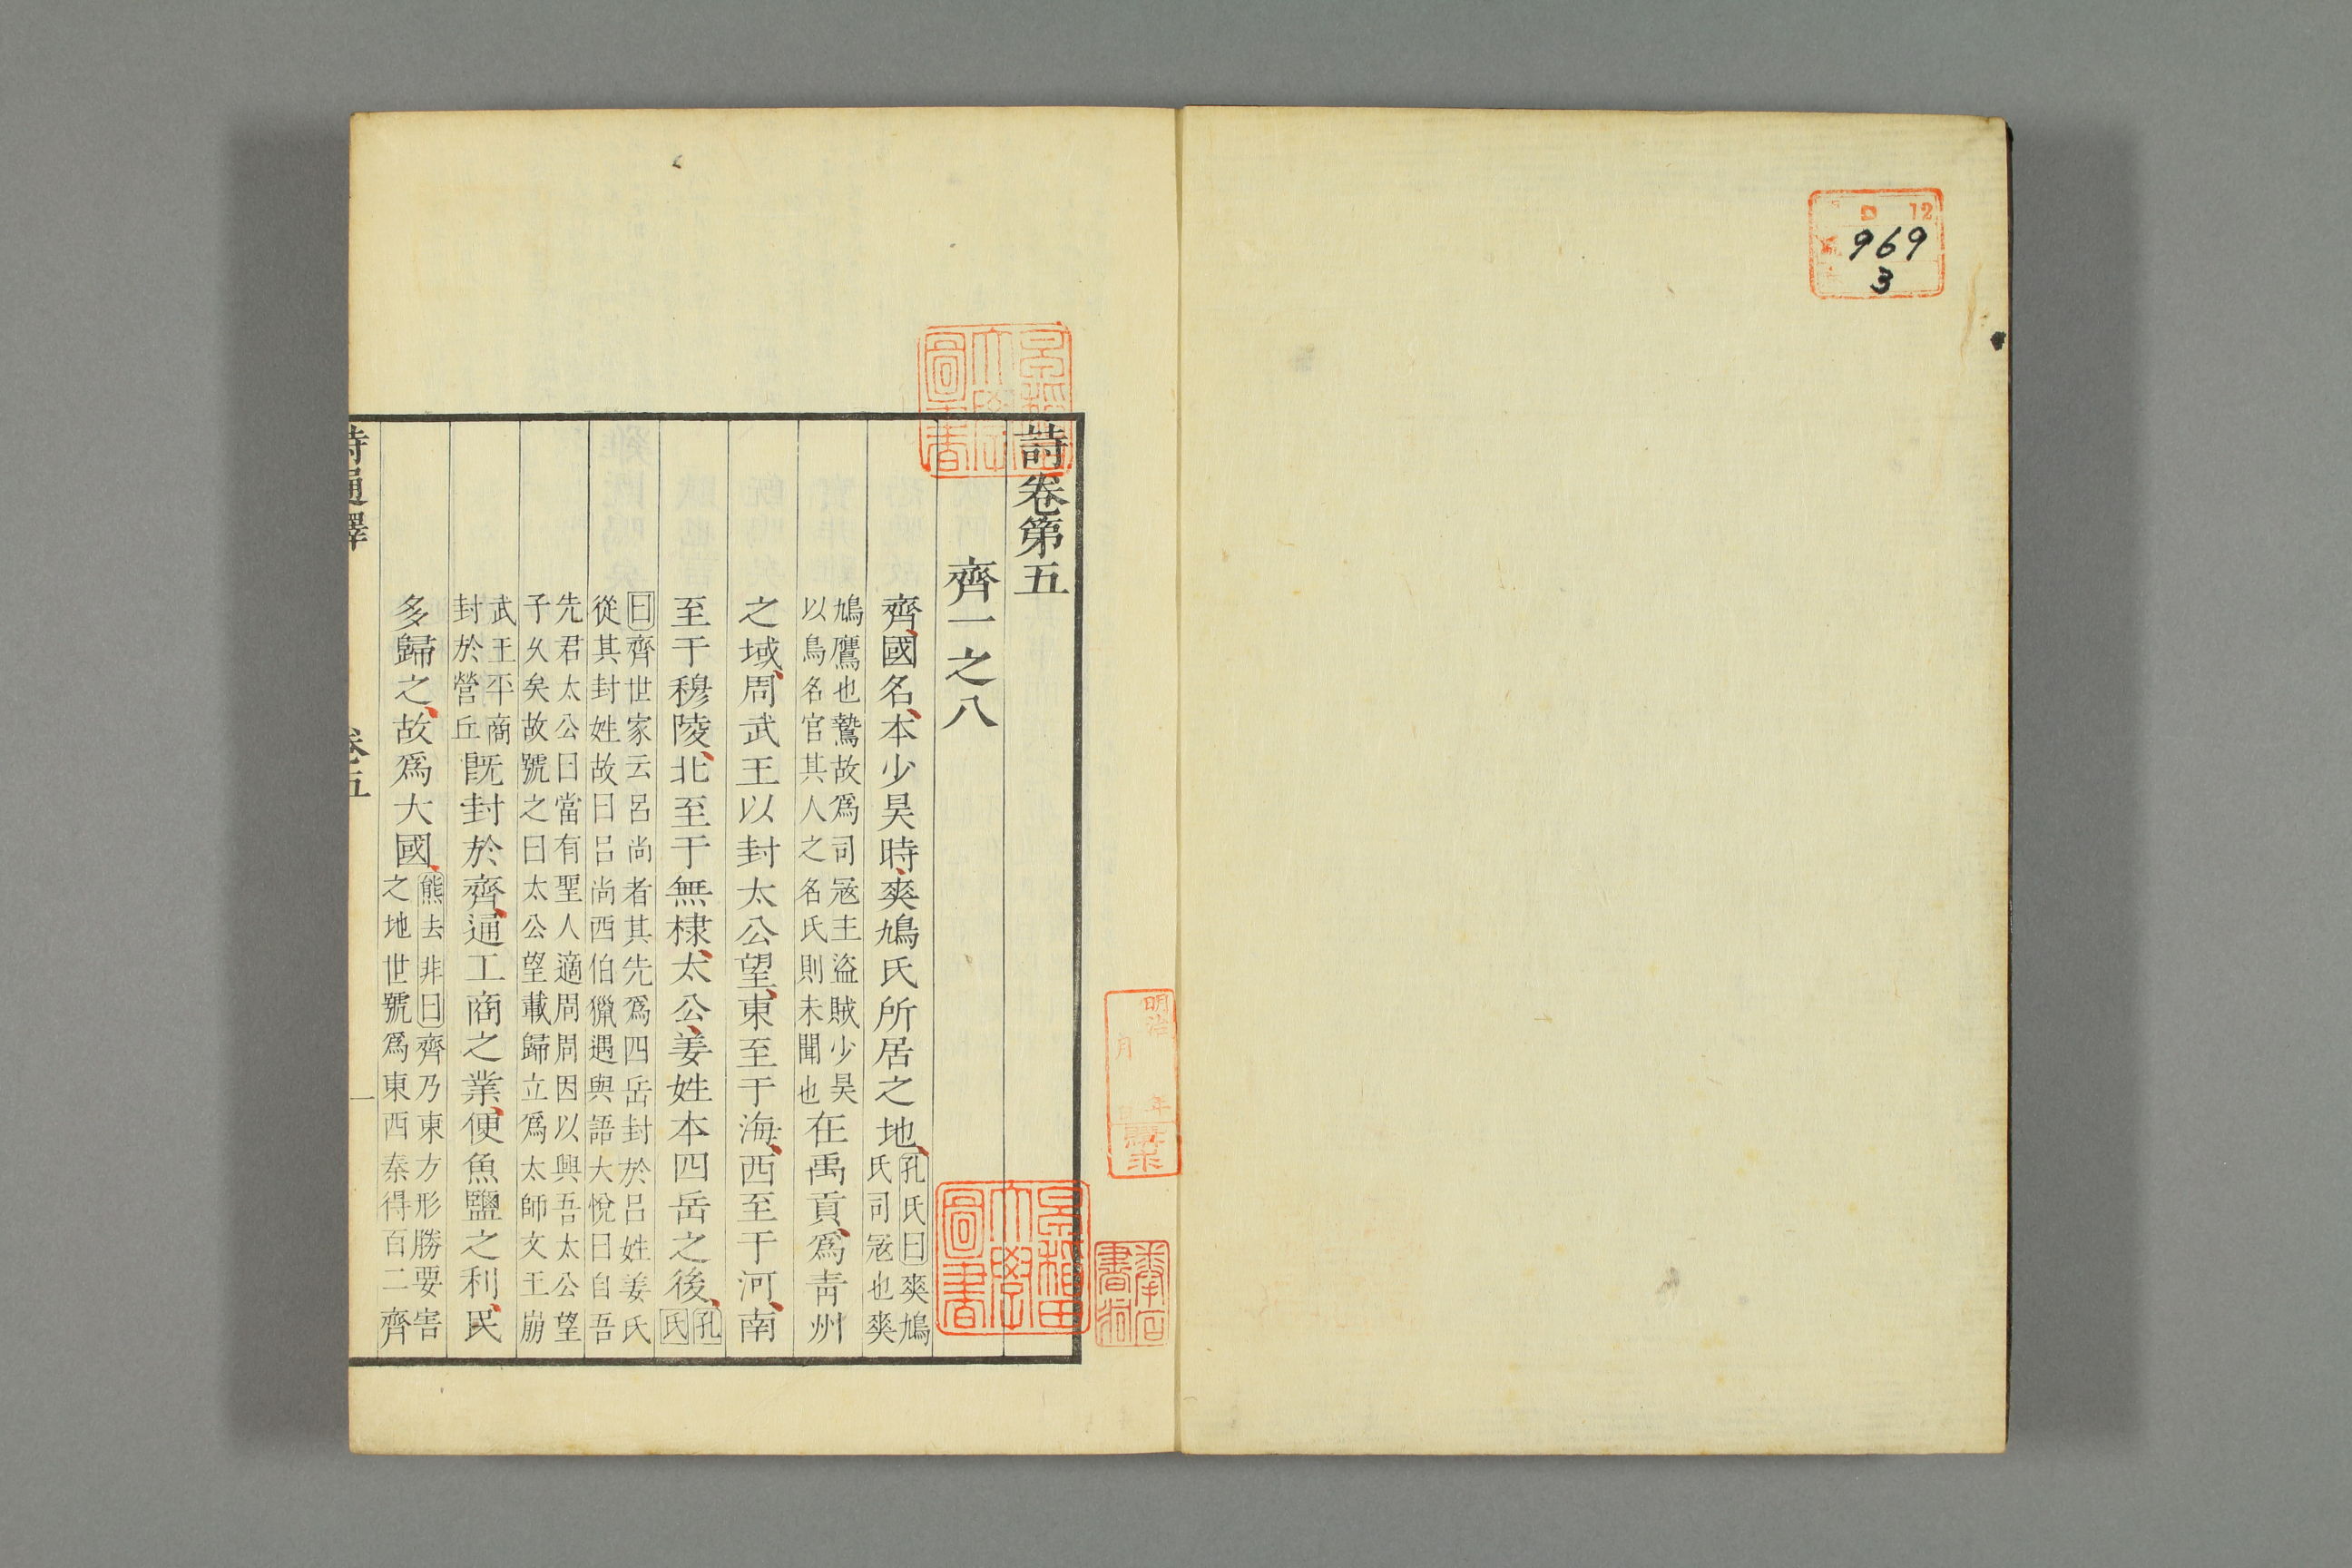 ロ 12
969
3
詩卷第五
齊一之八
齊國名本少昊時爽鳩氏所居之地孔氏曰爽鳩氏司寇也爽
鳩鷹也鷙故爲司冦主盜賊少昊以鳥名官其人之名氏則未聞也在禹貢爲青州
之域周武王以封太公望東至于海西至于河南
至于穆陵北至于無棣太公姜姓本四岳之後孔氏
曰齊世家云呂尚者其先爲四岳封於呂姓姜氏從其封姓故曰呂尚西伯獵遇與語大悅曰自吾
先君太公曰當有聖人適周周因以興吾太公望子久矣故號之曰太公望載歸立爲太師文王崩
武王平商封於營丘旣封於齊通工商之業便魚鹽之利民
多歸之故爲大國熊去非曰齊乃東方形勝要害之地世號爲東西秦得百二齊
詩通釋 卷五 一
早稻田大學圖書
早稻田大學圖書
明治 年 月 日
購求